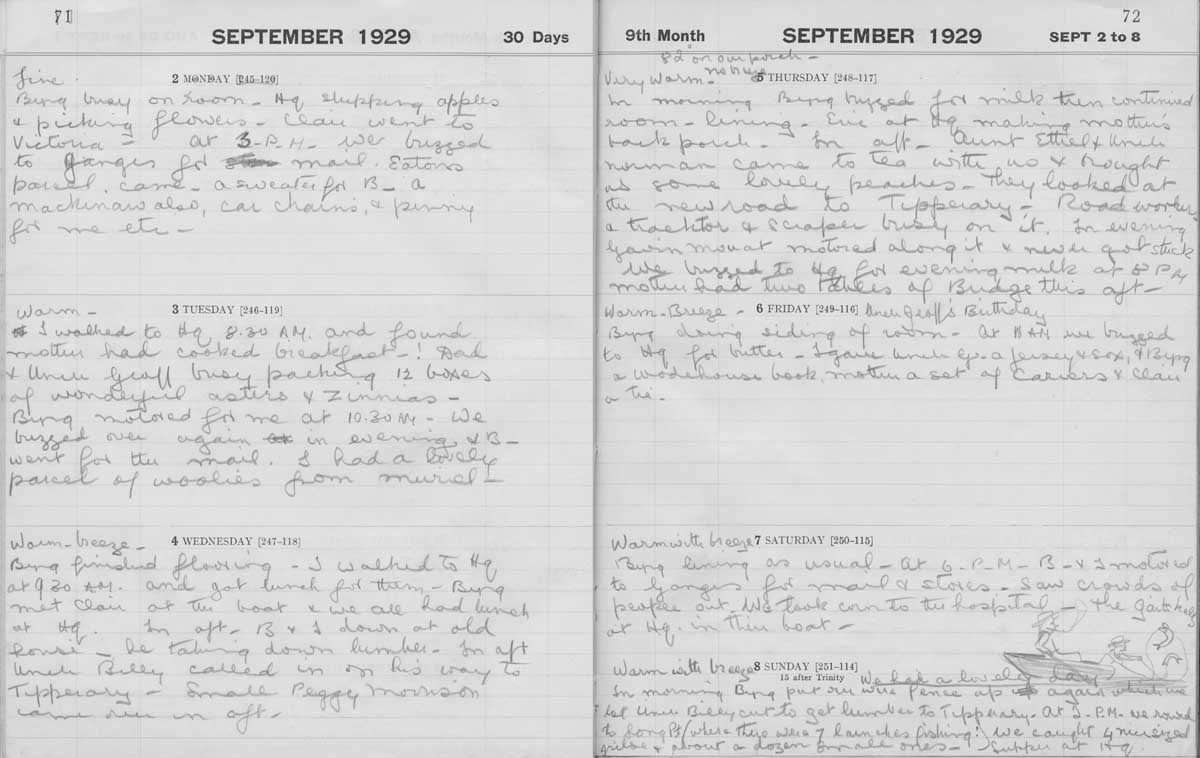 71
SEPTEMBER 1929 30 Days
Fine. 2 MONDAY [245-120]
Byng busy on room - Hq shipping apples
& picking flowers - Clair went to
Victoria - at 3-P.M- we buzzed
to Ganges for mail. Eatons
parcel came - a sweater for B - a
mackinaw also, car chains, & pinny
for me etc -
Warm - 3 TUESDAY [246-119]
I walked to Hq 8.30 AM. and found
mother had cooked breakfast - ! Dad
& Uncle Geoff busy packing 12 boxes
of wonderful asters & Zinnias -
Byng motored for me at 10.30 AM - We
buzzed over again in evening & B -
went for the mail. I had a lovely
parcel of woolies from Muriel -
Warm - breeze - 4 WEDNESDAY [247-118]
Byng finished flooring - I walked to Hq
at 9 30 AM. and got lunch for them - Byng
met Clair at the boat & we all had lunch
at Hq. In aft - B & I down at old
house - he taking down lumber - In aft
Uncle Billy called in on his way to
Tipperary - Small Peggy Morrison
came over in aft -
72
9th Month SEPTEMBER 1929 SEPT 2 to 8
82° on our porch -
Very warm - no breeze 5 THURSDAY [248-117]
In morning Byng buzzed for milk then continued
room - lining - Eric at Hq making mother's
back porch - In aft - Aunt Ethel & Uncle
Norman came to tea with us & brought
us some lovely peaches - They looked at
the new road to Tipperary - Road workers
a tracktor & scraper busy on it. In evening
Gavin Mouat motored along it & never got stuck
We buzzed to Hq for evening milk at 8 PM
mother had two tables of Bridge this aft -
Warm - Breeze - 6 FRIDAY [249-116] Uncle Geoff's Birthday
Byng doing siding of room - At 11 AM we buzzed
to Hq for butter - I gave Uncle G. a jersey & sox, & Byng
a Wodehouse book, mother a set of carvers & Clair
a tie -
Warm with breeze 7 SATURDAY [250-115]
Byng lining as usual - At 6 - P-M - B - & I motored
to Ganges for mail & stores - Saw crowds of
people out. We took corn to the hospital - the
at Hq. in their boat -
Warm with breeze 8 SUNDAY [251-114]
15 after Trinity We had a lovely day
In morning Byng put our wire fence up again which we
let Uncle Billy cut to get lumber to Tipperary - At 2 - P.M - we rowed
to Long Pt (where there were 7 launches fishing!) We caught 4
grilse & about a dozen small ones - Supper at Hq.